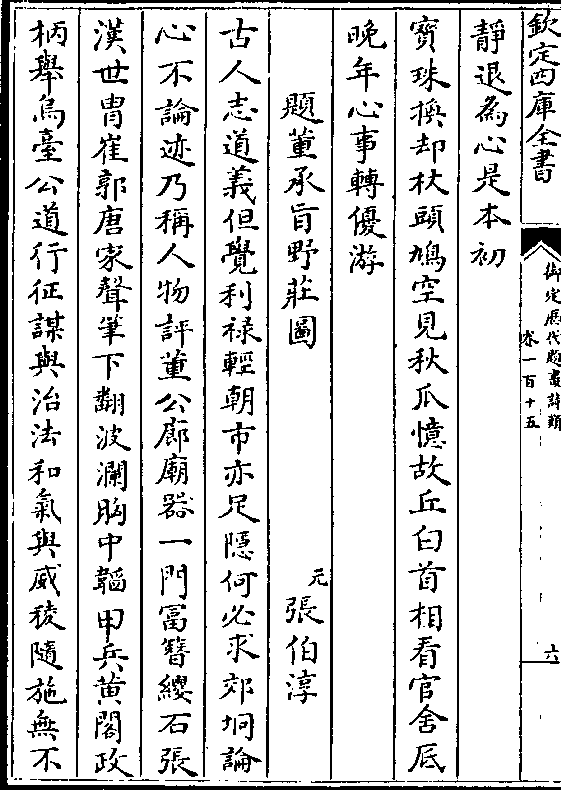 欽定四庫全書
御定歷代題畫詩類
卷一百十五
六
靜退為心是本初
寳珠換却杖頭鳩空見秋瓜憶故丘白首相看官舍底
晚年心事轉優游
題董承旨野莊圖
元張伯淳
古人志道義但覺利祿輕朝市亦足隱何必求郊坰論
心不論迹乃稱人物評董公廊廟器一門冨簪纓石張
漢世胄崔郭唐家聲筆下翻波瀾胸中韜甲兵黄閣政
柄舉烏臺公道行征謀與治法和氣與威稜隨施無不